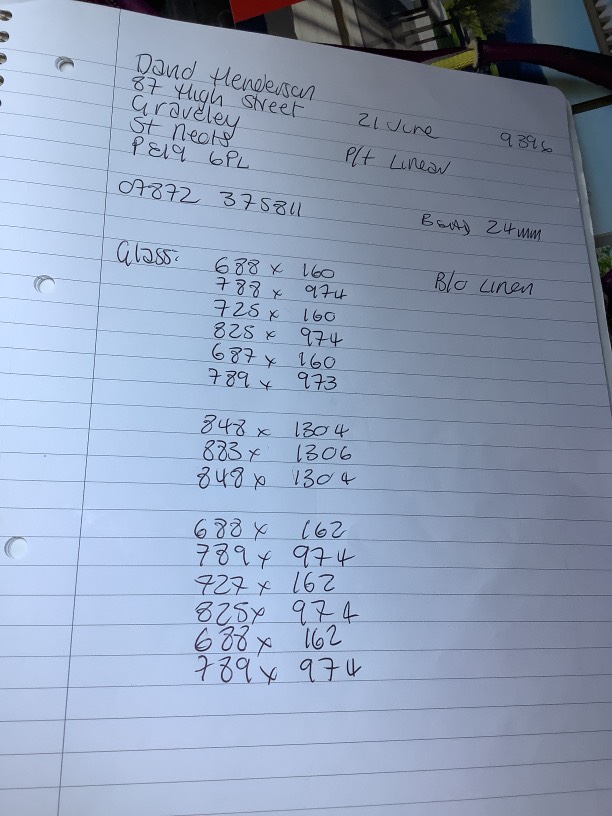 David Henderson
87 High Street
Graveley 21 June 9396
St Neots
PE19 6PL P/t Linear
07872 375811
Bead 24mm
Glass: 688 x 160
788 x 974 B/o Linen
725 x 160
825 x 974
687 x 160
789 x 973
848 x 1304
883 x 1306
848 x 1304
688 x 162
789 x 974
727 x 162
825 x 974
688 x 162
789 x 974